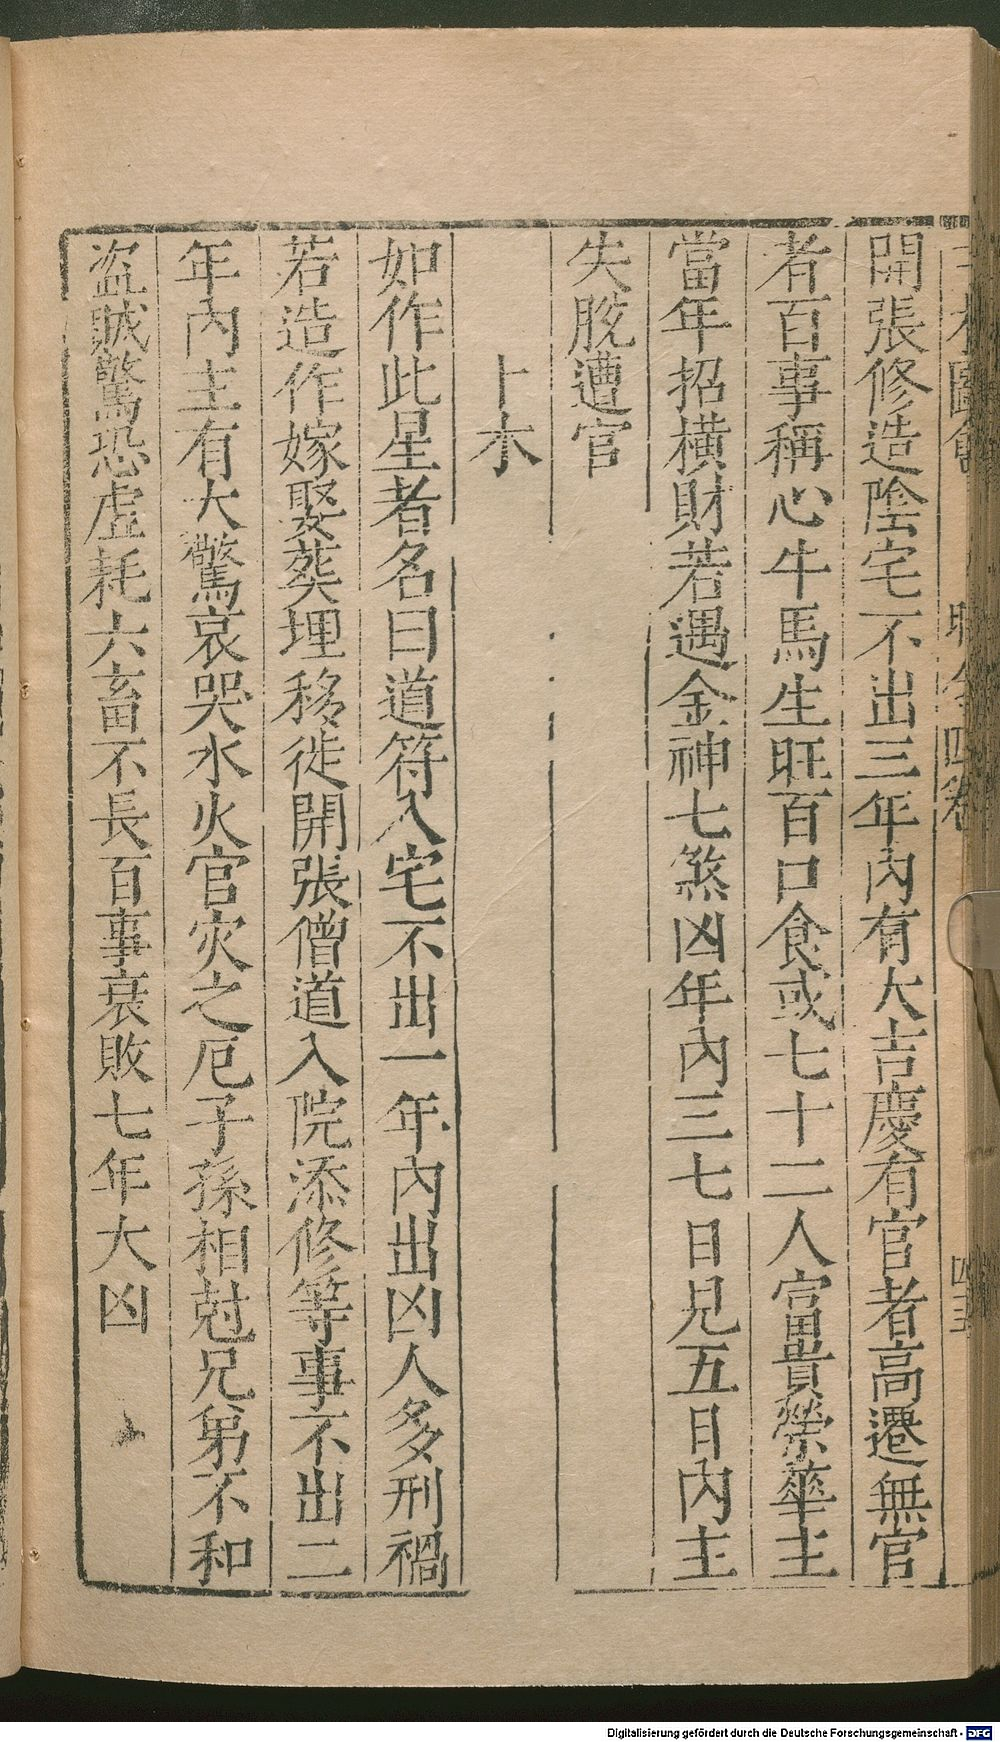 開張修造陰宅不出三年內有大吉慶有官者高遷無官
者百事稱心牛馬生旺百口食或七十二人富貴榮華主
當年招橫財若遇金神七煞凶年內三七日見五日內主
失脫遭官
卜木
如作此星者名曰道符入宅不出一年內出凶人多刑禍
若造作嫁娶葬埋移徙開張僧道入院添修等事不出二
年內主有大驚哀哭水火官灾之厄子孫相尅兄弟不和
盜賊驚恐虛耗六畜不長百事衰敗七年大凶
Digitalisierung gefördert durch die Deutsche Forschungsgemeinschaft - DFG